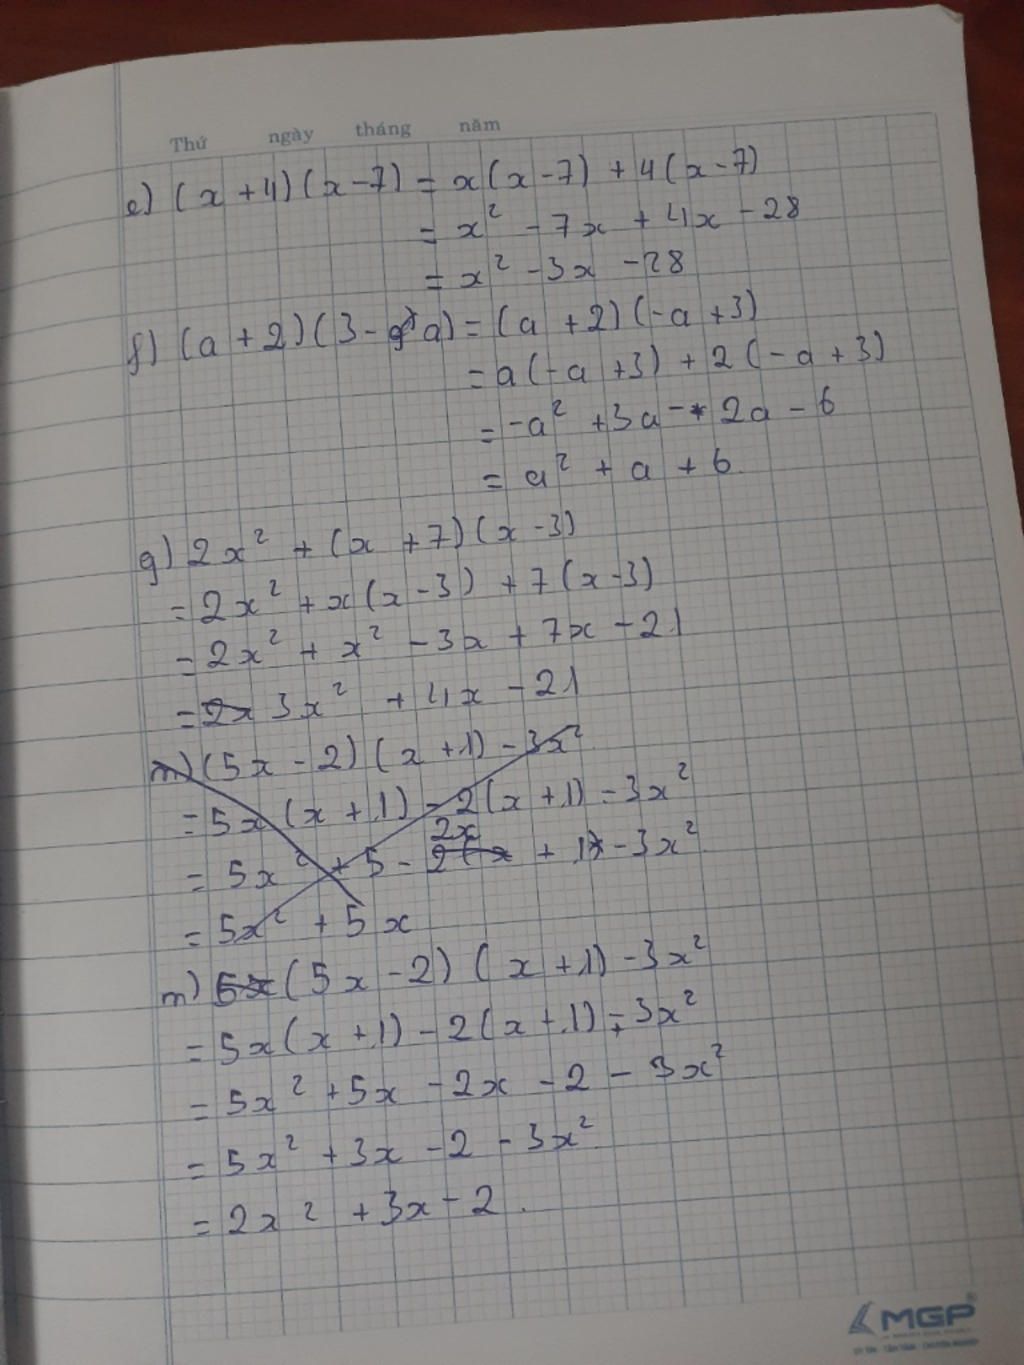 Thứ ngày tháng năm
e) (x + 4)(x - 7) = x(x - 7) + 4(x - 7)
= x² - 7x + 4x - 28
= x² - 3x - 28
f) (a + 2)(3 - a) = (a + 2)(-a + 3)
= a(-a + 3) + 2(-a + 3)
= -a² + 3a - 2a - 6
= a² + a + 6
g) 2x² + (x + 7)(x - 3)
= 2x² + x(x - 3) + 7(x - 3)
= 2x² + x² - 3x + 7x - 21
= 2x 3x² + 4x - 21
m) (5x - 2)(x + 1) - 3x²
= 5x(x + 1) - 2(x + 1) - 3x²
= 5x² + 5 - 2x + 1 - 3x²
= 5x² + 5x
m) 5x (5x - 2)(x + 1) - 3x²
= 5x(x + 1) - 2(x + 1) - 3x²
= 5x² + 5x - 2x - 2 - 3x²
= 5x² + 3x - 2 - 3x²
= 2x² + 3x - 2.
MGP